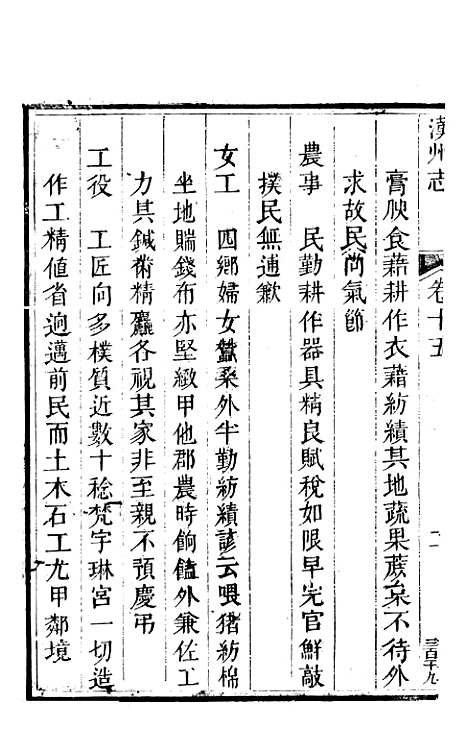 漢州志 卷十五 二 三百十九
膏腴食藉耕作衣藉紡績其地蔬果蔗枲不待外
求故民尚氣節
農事 民勤耕作器具精良賦稅如限早完官鮮敲
撲民無逋歉
女工 四鄉婦女蠶桑外半勤紡績諺云喂猪紡棉
坐地賺錢布亦堅緻甲他郡農時餉饁外兼佐工
力其鍼黹精麤各視其家非至親不預慶弔
工役 工匠向多樸質近數十稔梵宇琳宮一切造
作工精值省逈邁前民而土木石工尤甲鄰境